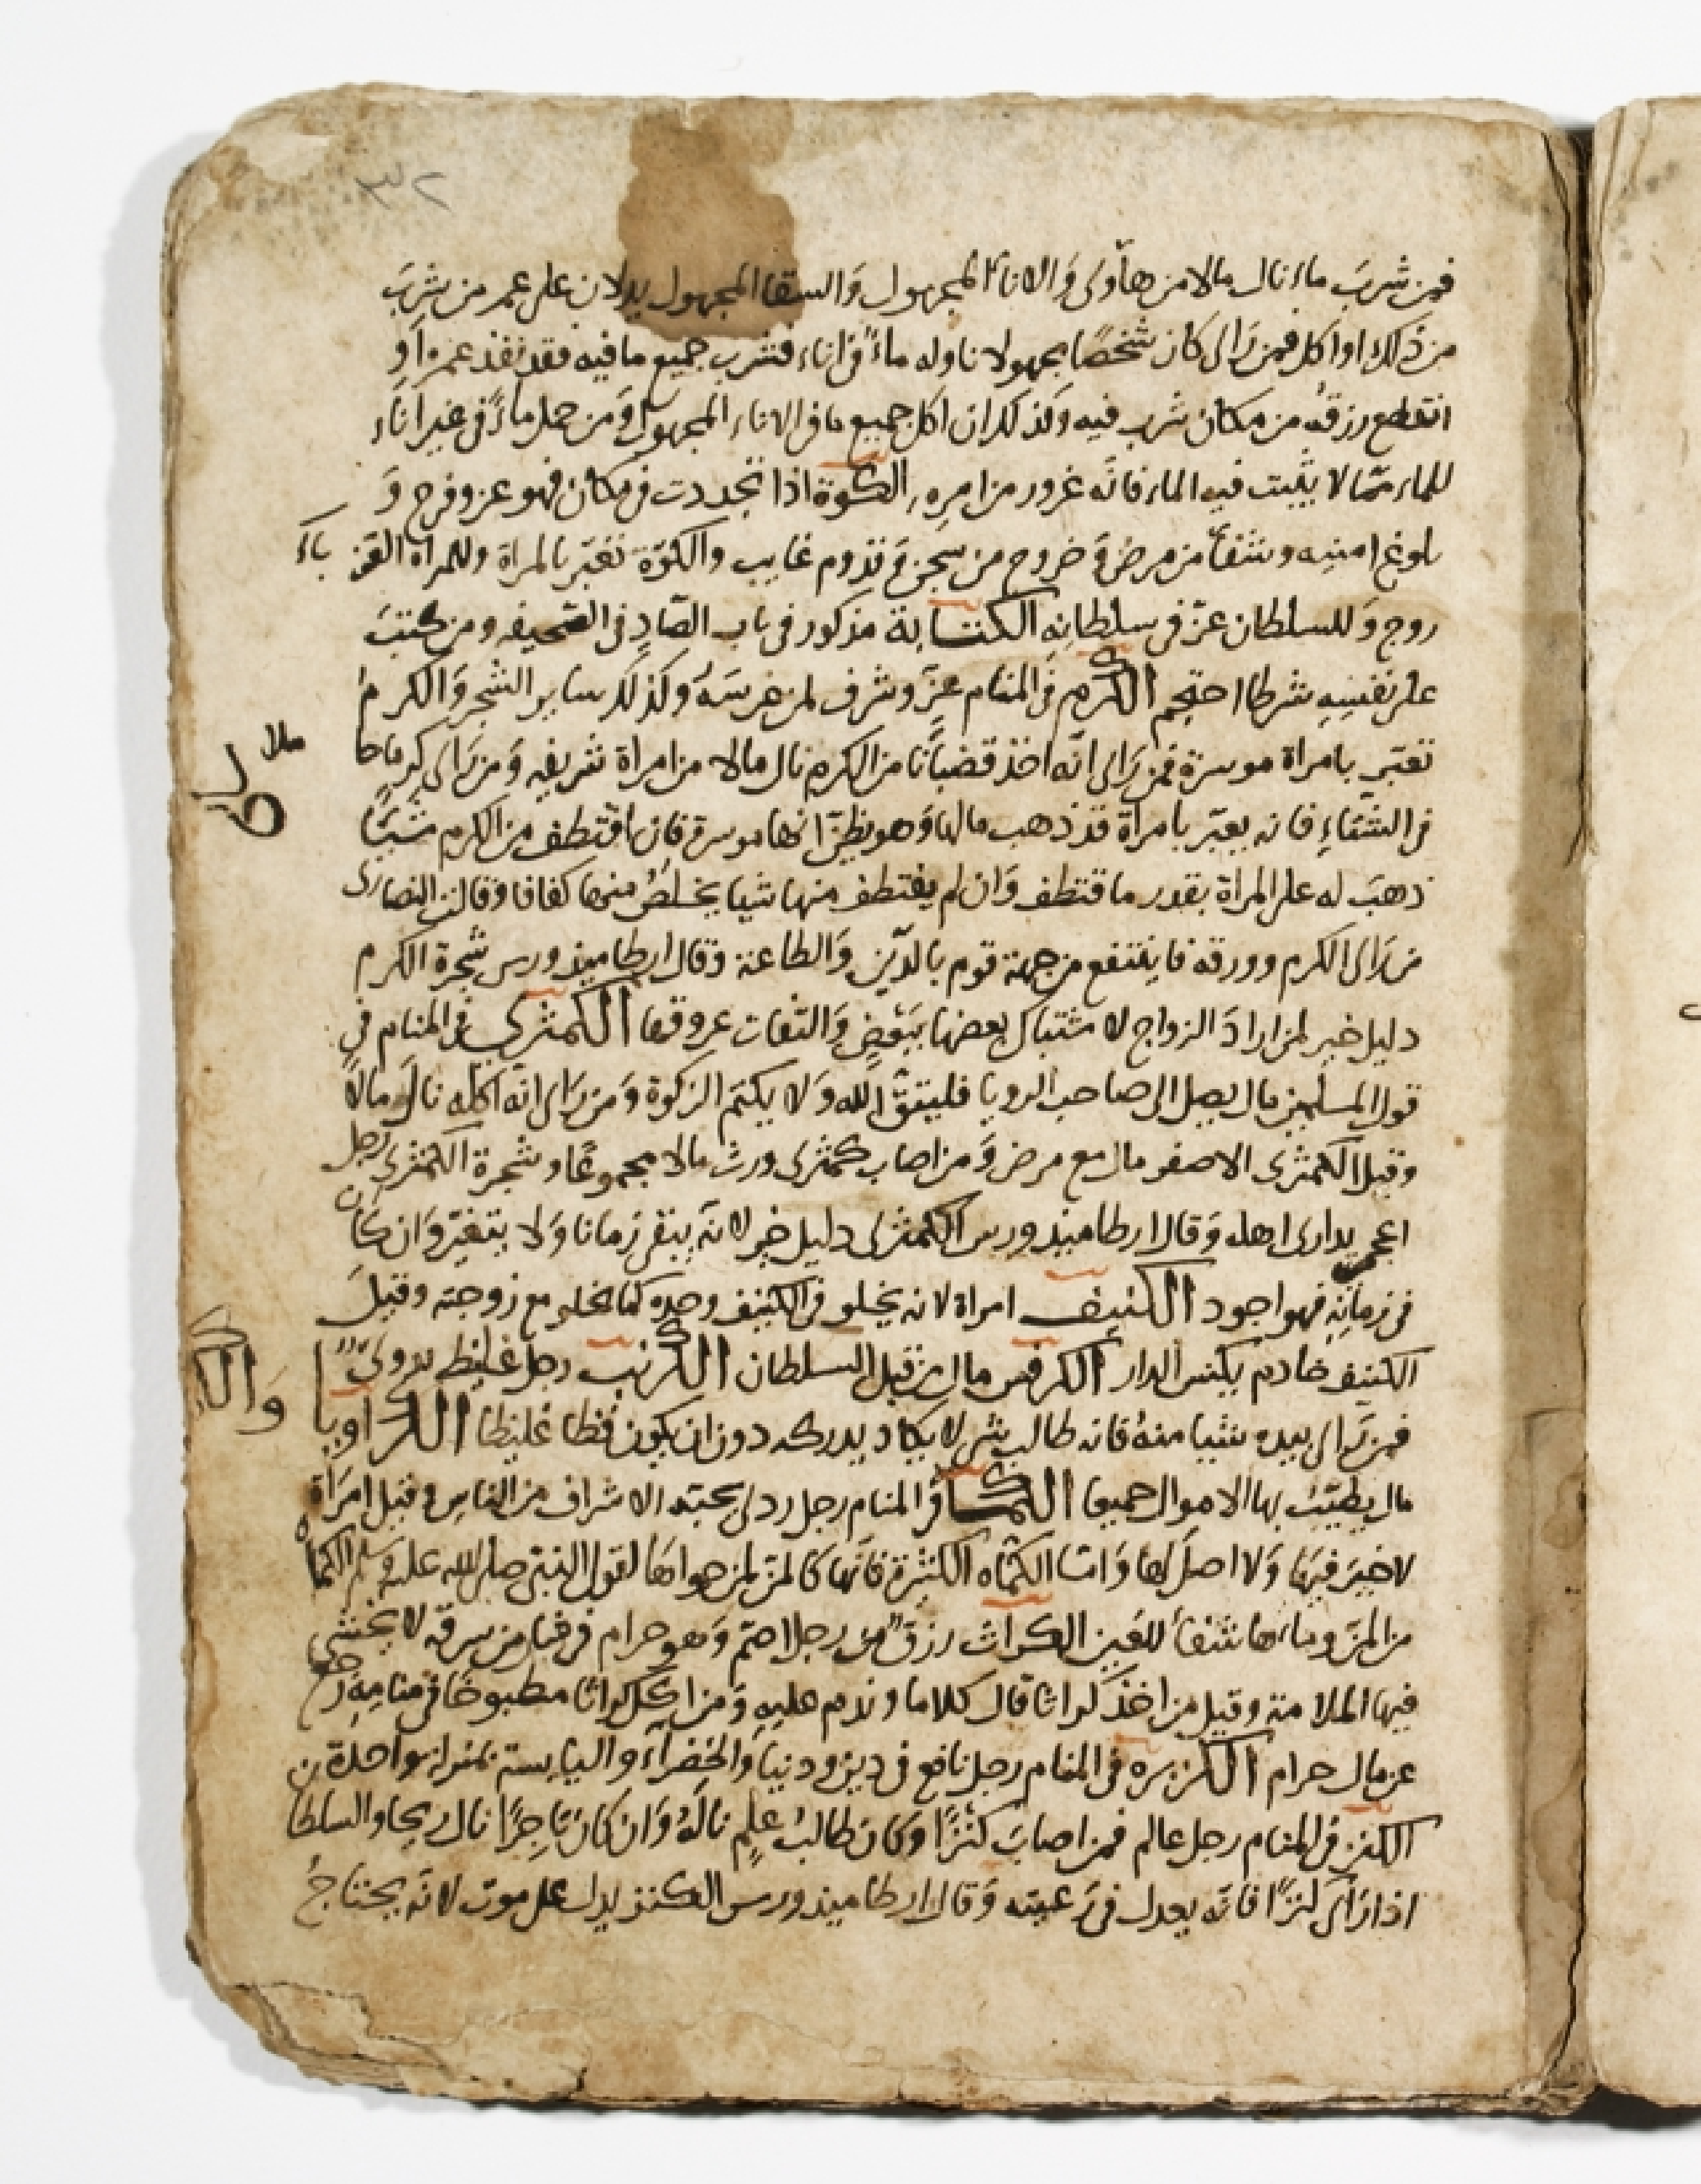 ٣٢
فمن شرب ماء نال مالا من هاولى والاناء المجهول والسقا المجهول يدلان على عمر من شرب
من ذلك او اكل فمن راى كان شخصا مجهولا ناوله ماء فى اناء فشرب جميع ما فيه فقد نفذ عمره او
انقطع رزقه من مكان شرب فيه وكذلك ان اكل جميع ما فى الاناء المجهول ومن حمل ماء فى غير اناء
للماء مما لا يثبت فيه الماء فانه غرور من امره الكوة اذا تجددت فى مكان فهو عز وفرج و
بلوغ امنيه وشفا من مرض و خروج من سجن و قدوم غايب والكوة تعبر بالمراة وللمراة العزباء
زوج وللسلطان عز فى سلطانه الكتابة مذكور فى باب الصاد فى الصحيفه ومن كتب
على نفسه شرطا احتجم الكرم فى المنام عز وشرف لمن غرسه وكذلك ساير الشجر والكرم
تعبر بامراة موسرة فمن راى انه اخذ قضبانا من الكرم نال مالا من امراة شريفه ومن راى كرما حا
ملا
فى الشتاء فانه يعبر بامراة قد ذهب مالها وهو يظن انها موسرة فان اقتطف من الكرم شيا
ذهب له على المراة بقدر ما قتطف وان لم يقتطف منها شيا يخلص منها كفافا وقالت النصارى
من راى الكرم وورقه فاينتفع من جهة قوم بالدين والطاعة وقال ارطاميدورس شجرة الكرم
دليل خير لمن اراد الزواج لاشتباك بعضها ببعض والتفات عروقها الكمثرى فى المنام فى
قول المسلمين مال يصل الى صاحب الرويا فليتق الله ولا يكتم الزكوة ومن راى انه اكله نال مالا
وقيل الكمثرى الاصفر مال مع مرض ومن اصاب كمثرى ورث مالا مجموعا وشجرة الكمثرى رجل
اعجمى يدارى اهله وقال ارطاميدورس الكمثرى دليل خير لانه يبقى زمانا ولا يتغير وان كان
فى زمانه فهو اجود الكنيف امراة لانه يخلو فى الكنيف وحده كما يخلو مع زوجته وقيل
الكنيف خادم يكنس الدار الكرفس مال من قبل السلطان الكرنب رجل غليظ بدوى
فمن راى بيده شيا منه فانه طالب شى لا يكاد يدركه دون ان يكون فظا غليظا الكراويا
مال يطيب بها الاموال جميعا الكما فى المنام رجل ردى يحبته الاشراف من الناس وقيل امراة
لا خير فيها ولا اصل لها واما الكماه الكثيرة فانها كالمن لمن هواها لقول النبى صلى الله عليه وسلم الكماه
من المن وماءها شفا للعين الكراث رزق من رجل اصم وهو حرام فى قبل من سرقه لا يخشى
فيها الملامة وقيل من اخذ كراثا قال كلاما وندم عليه ومن اكل كراثا مطبوخا فى منامه رجع
عن مال حرام الكزبره فى المنام رجل نافع فى دين ودنيا والخضرآء واليابسة بمنزلة واحدة
الكنز فى المنام رجل عالم فمن اصاب كنزا وكان طالب علم ناله وان كان تاجرا نال ربحا والسلطا
اذا راى كنزا فانه يعدل فى رعيته وقال ارطاميدورس الكنز يدل على موت لانه يحتاج